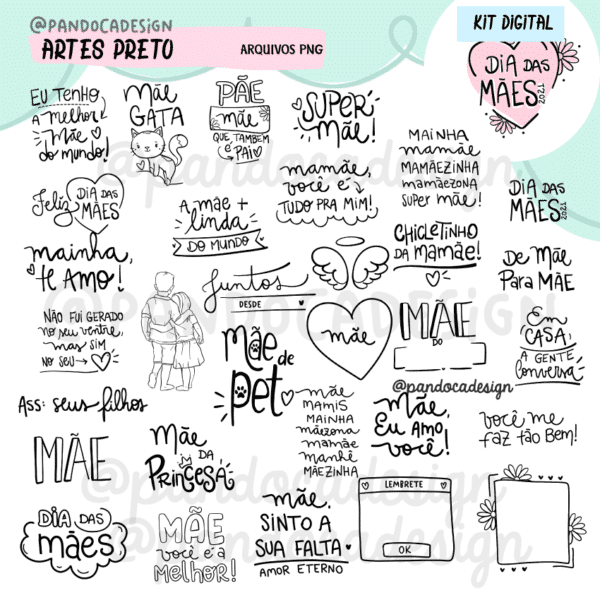 @PANDOCADESIGN
ARTES PRETO
ARQUIVOS PNG
KIT DIGITAL
DIA DAS
MÃES
2021
EU TENHO
A melhor
Mãe
do mundo!
Mãe
GATA
PÃE
mãe
QUE TAMBÉM
É PAI
SUPER
mãe!
MAINHA
mamãe
MAMÃEZINHA
mamãezona
SUPER mãe!
Feliz
DIA DAS
MÃES
A mãe +
linda
DO MUNDO
mamãe,
você é
TUDO PRA MIM!
DIA DAS
MÃES
2021
mainha,
te Amo!
Juntos
DESDE
CHICLETINHO
DA mamãe!
De Mãe
Para MÃE
NÃO FUI GERADO
no seu ventre,
mas SIM
NO seu
Mãe de
pet
mãe
MÃE
DO
Em
CASA,
A GENTE
Conversa
@pandocadesign
Ass: seus filhos
mãe
MAMIS
MAINHA
mãezona
mamãe
manhê
MÃEZINHA
Mãe,
Eu Amo
você!
você me
faz tão Bem!
MÃE
Mãe
DA
PRINCESA
DIA DAS
mães
MÃE
você é a
Melhor!
mãe,
SINTO A
SUA FALTA
AMOR ETERNO
LEMBRETE
OK
@pandocadesign
@pandocadesign
@pandocadesign
@pandocadesign